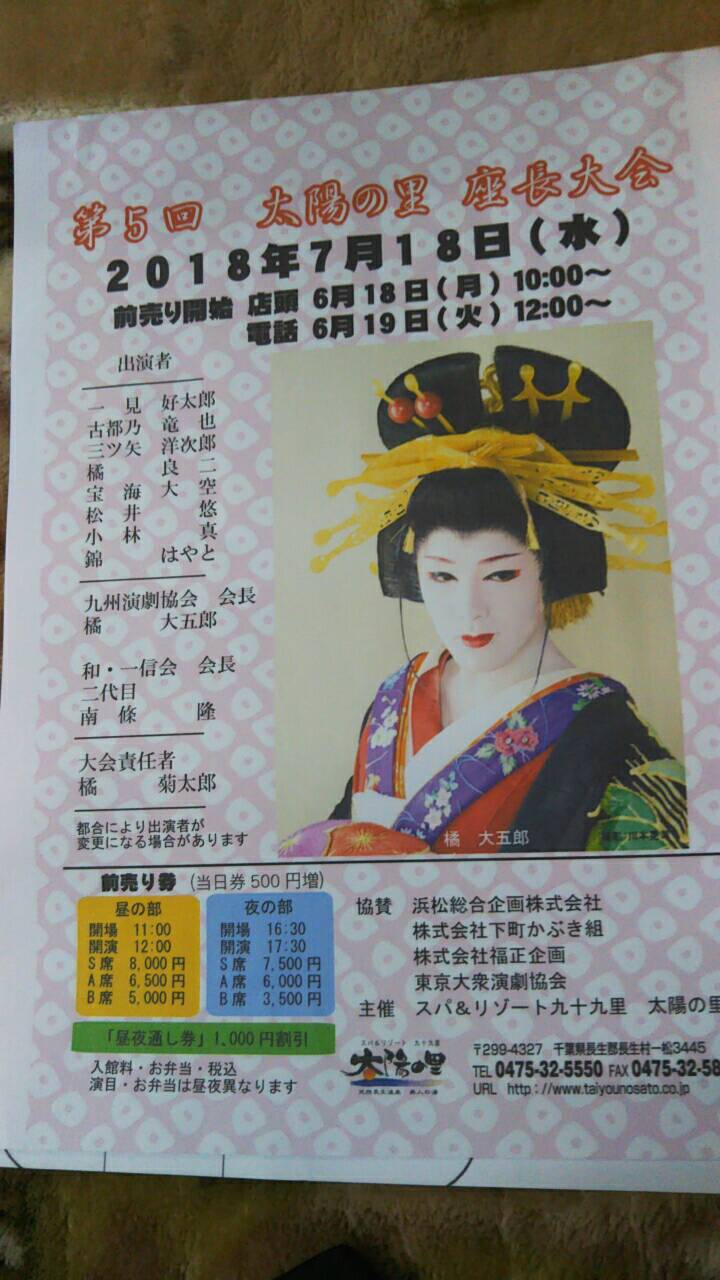 第5回 太陽の里 座長大会
2018年7月18日(水)
前売り開始 店頭 6月18日(月) 10:00～
電話 6月19日(火) 12:00～
出演者
一見 好太郎
古都乃 竜也
三ツ矢 洋次郎
橘 良二
宝海 大空
松井 悠
小林 真
錦 はやと
九州演劇協会 会長
橘 大五郎
和・一信会 会長
二代目
南條 隆
大会責任者
橘 菊太郎
都合により出演者が
変更になる場合があります
橘 大五郎
前売り券 (当日券500円増)
昼の部
開場 11:00
開演 12:00
S席 8,000円
A席 6,500円
B席 5,000円
夜の部
開場 16:30
開演 17:30
S席 7,500円
A席 6,000円
B席 3,500円
「昼夜通し券」1,000円割引
入館料・お弁当・税込
演目・お弁当は昼夜異なります
協賛 浜松総合企画株式会社
株式会社下町かぶき組
株式会社福正企画
東京大衆演劇協会
主催 スパ&リゾート九十九里 太陽の里
スパ&リゾート 九十九里
太陽の里
〒299-4327 千葉県長生郡長生村一松3445
TEL 0475-32-5550 FAX 0475-32-58
URL http://www.taiyounosato.co.jp